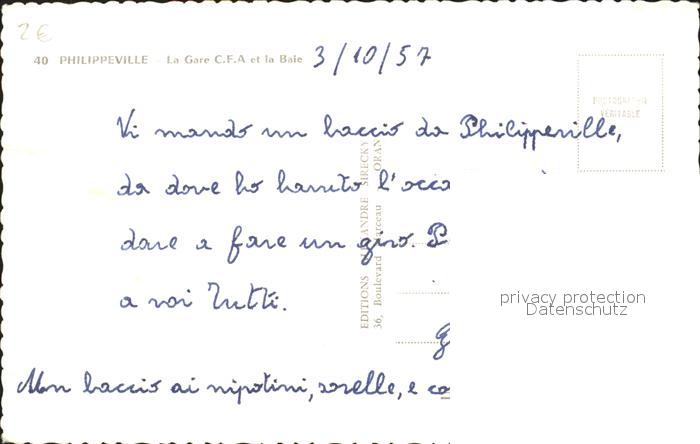 2€
40 PHILIPPEVILLE - La Gare C.F.A et la Baie
3/10/57
PHOTOGRAPHIE
VÉRITABLE
Vi mando un baccio da Philippeville,
da dove ho hanuto l'occa
dare a fare un giro. P
a voi Tutti.
g
Mon baccio ai nipotini, sorelle, e co
EDITIONS ALEXANDRE SIRECKY
36, Boulevard Marceau ORAN
privacy protection
Datenschutz